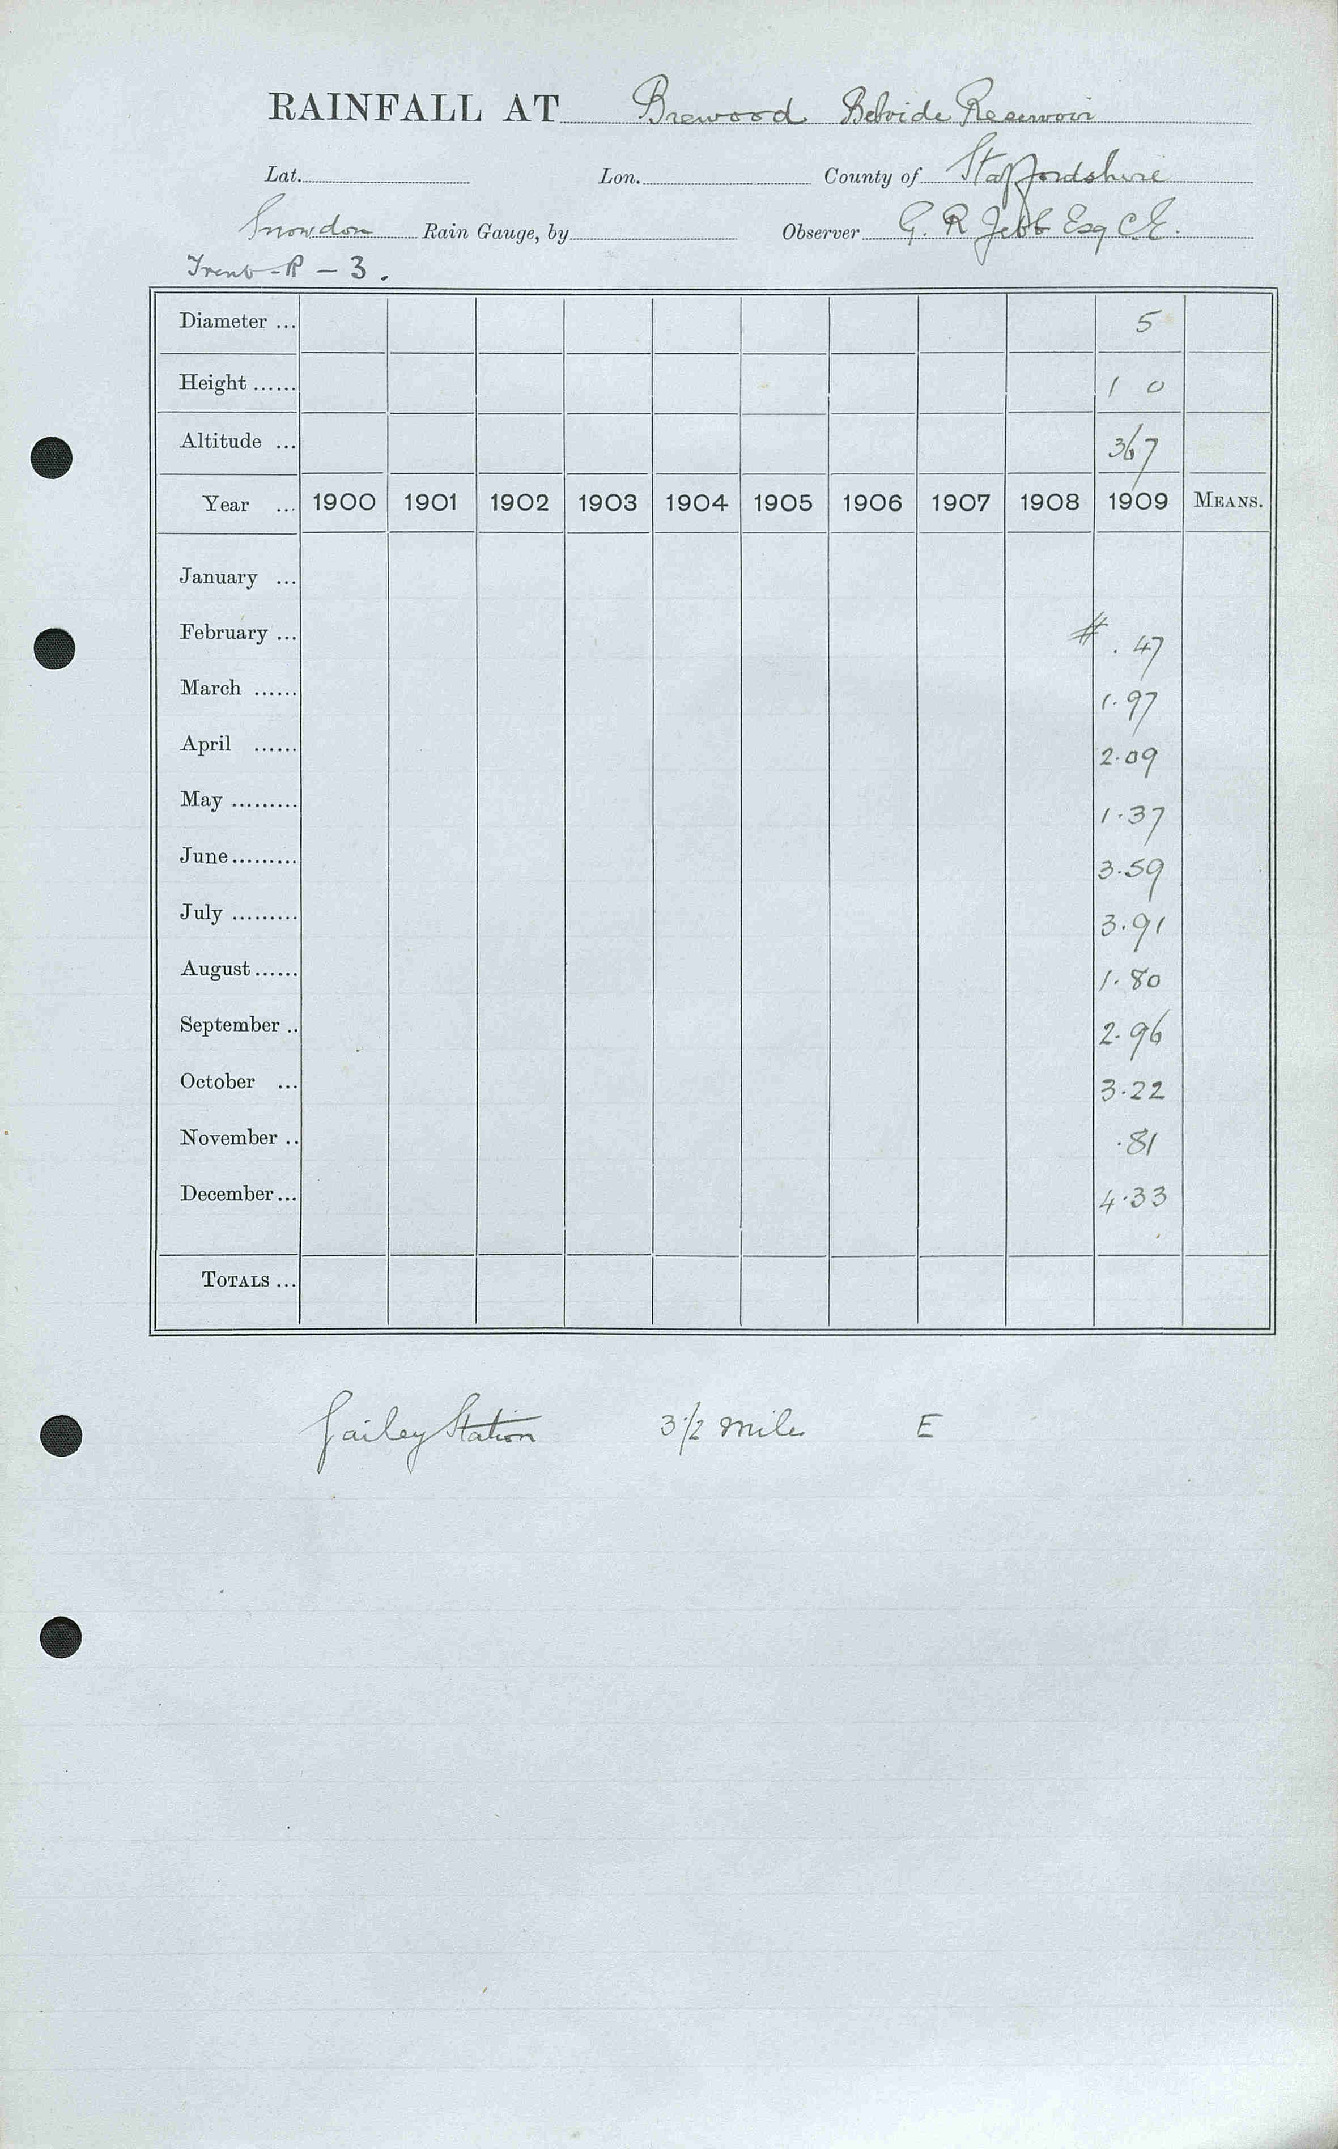 RAINFALL AT Brewood Belvide Reservoir
Lat. Lon. County of Staffordshire
Snowdon Rain Gauge, by Observer G. R Jebb Esq C.E.
Trent-R - 3.
Diameter ... 5
Height ...... 1 0
Altitude ... 367
Year ... 1900 1901 1902 1903 1904 1905 1906 1907 1908 1909 MEANS.
January ...
February ... # .47
March ...... 1.97
April ...... 2.09
May ......... 1.37
June......... 3.59
July ......... 3.91
August...... 1.80
September .. 2.96
October ... 3.22
November .. .81
December... 4.33
TOTALS ...
Gailey Station 3 1/2 mile E